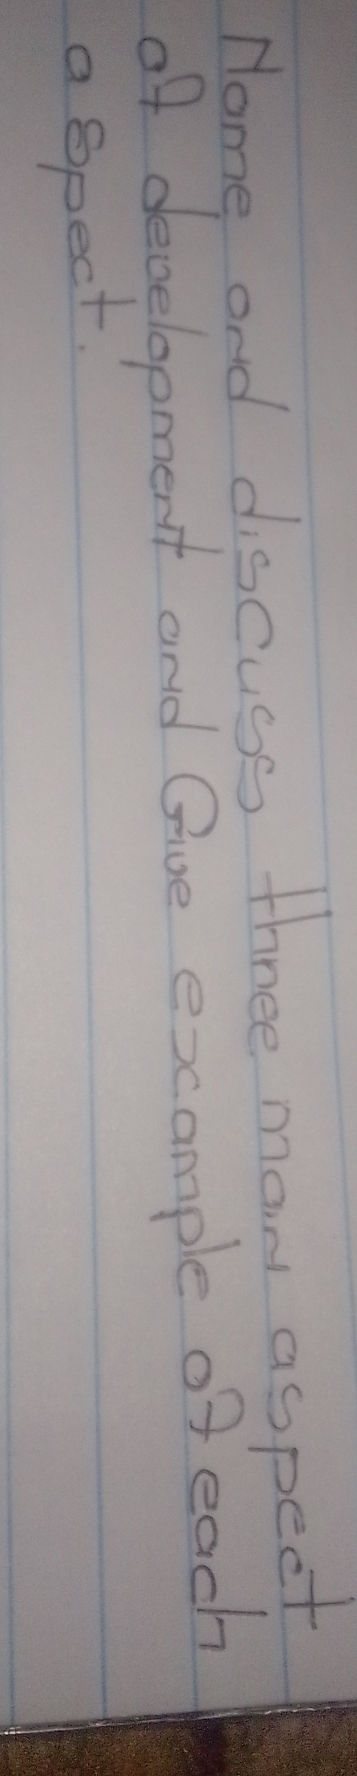 Name and discuss three main aspect
of development and Give example of each
aspect.